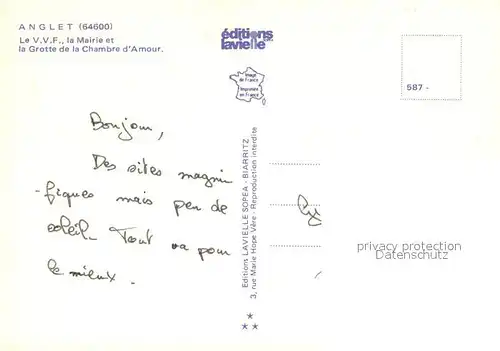 ANGLET (64600)
Le V.V.F., la Mairie et
la Grotte de la Chambre d'Amour.
éditions
lavielle
Image
de France
Imprimerie
en France
587 -
Bonjour,
Des sites magni
-fiques mais peu de
soleil. Tout va pour
le mieux.
Editions LAVIELLE SOPEA - BIARRITZ
3, rue Marie Hope Vère - Reproduction interdite
privacy protection
Datenschutz